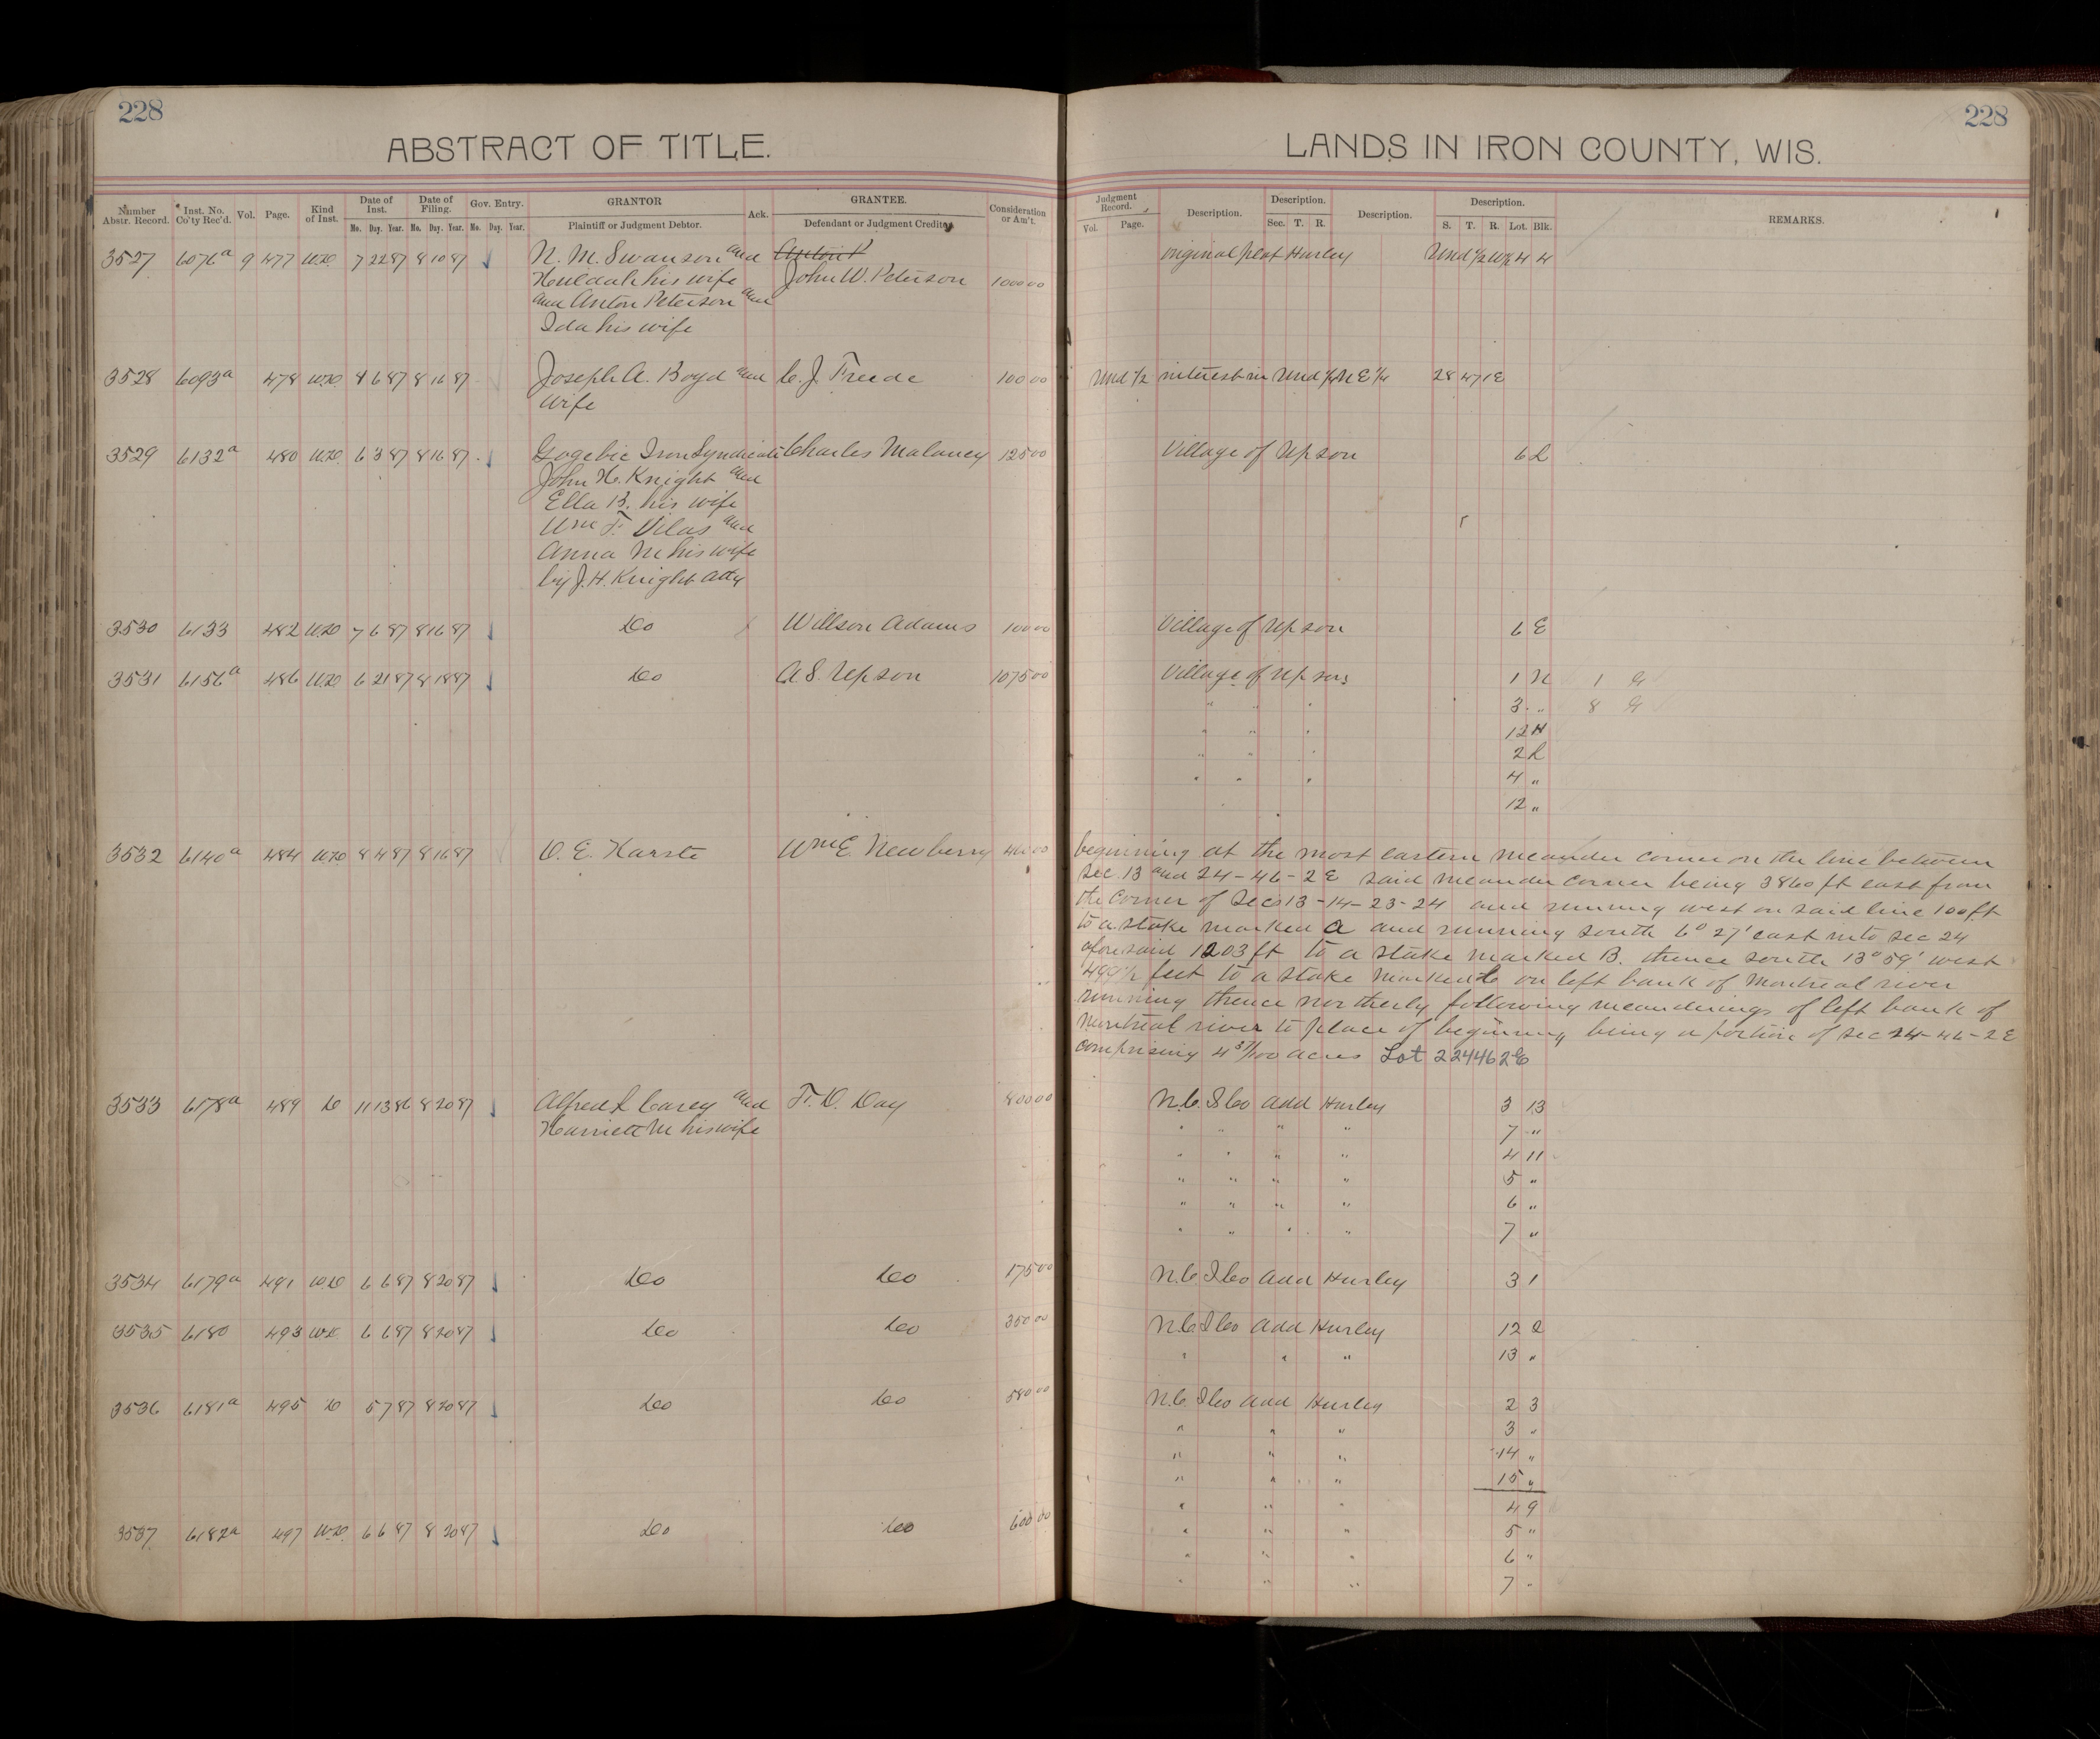 228
228
ABSTRACT OF TITLE.
LANDS IN IRON COUNTY, WIS.
Number Abstr. Record. Inst. No. Co'ty Rec'd. Vol. Page. Kind of Inst. Date of Inst. Mo. Day. Year. Date of Filing. Mo. Day. Year. Gov. Entry. Mo. Day. Year. GRANTOR Plaintiff or Judgment Debtor. Ack. GRANTEE. Defendant or Judgment Creditor Consideration or Am't.
Judgment Record. Vol. Page. Description. Description. Sec. T. R. Description. Description. S. T. R. Lot. Blk. REMARKS.
3527 6076a 9 477 WD 7 22 87 8 10 87 N. M. Swanson and John W. Peterson 1000 00 original plat Hurley Und 1/2 W 1/2 4 4
Huldah his wife
and Anton Peterson and
Ida his wife
3528 6093a 478 WD 8 6 87 8 16 87 Joseph A. Boyd and C. J. Freede 100 00 Und 1/2 interest in Und 1/4 NE 1/4 28 47 1E
wife
3529 6132a 480 WD 6 3 87 8 16 87 Gogebic Iron Syndicate Charles Maloney 125 00 Village of Upson 6 L
John H. Knight and
Ella B. his wife
Wm F. Vilas and
Anna M his wife
by J. H. Knight atty
3530 6133 482 WD 7 6 87 8 16 87 Do Willson Adams 100 00 Village of Upson 6 E
3531 6156a 486 WD 6 21 87 8 18 87 Do A S. Upson 1075 00 Village of Upson 1 N 1 G
" " " 3 " 8 G
" " " 12 H
" " " 2 L
" " " 4 "
12 "
3532 6140a 484 WD 8 4 87 8 16 87 O. E. Karste Wm E. Newberry beginning at the most eastern meander corner on the line between
sec 13 and 24-46-2E said meander corner being 3860 ft east from
the corner of Secs 13-14-23-24 and running west on said line 100 ft
to a stake marked A and running south 6° 27' east into sec 24
aforesaid 1203 ft to a stake marked B. thence south 13° 59' west
499 1/2 feet to a stake marked C on left bank of Montreal river
running thence northerly following meanderings of left bank of
Montreal river to place of beginning being a portion of sec 24-46-2E
comprising 4 37/100 acres Lot 2 24 46 2E
3533 6178a 489 D 11 13 86 8 20 87 Alfred L Carey and F. D. Day 800 00 N.C. I Co add Hurley 3 13
Harriett M his wife " " " " 7 "
" " " " 4 11
" " " " 5 "
" " " " 6 "
" " " " 7 "
3534 6179a 491 WD 6 6 87 8 20 87 Do Do 175 00 N.C. I Co add Hurley 3 1
3535 6180 493 WD 6 6 87 8 20 87 Do Do 350 00 N.C. I Co add Hurley 12 2
" " " 13 "
3536 6181a 495 D 5 7 87 8 20 87 Do Do 580 00 N.C. I Co add Hurley 2 3
" " " 3 "
" " " 14 "
" " " 15 "
" " " 4 9
3537 6182a 497 WD 6 6 87 8 20 87 Do Do 600 00 " " " 5 "
" " " 6 "
" " " 7 "